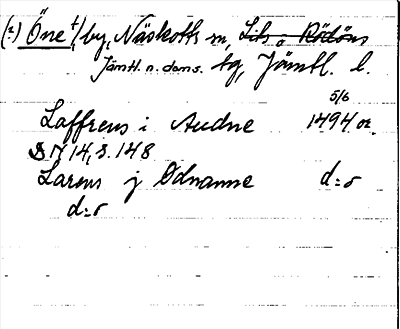 (2) Öne t, by, Näskotts sn, Lits o Rödöns
Jämtl. n. doms. tg, Jämtl. l.
5/6
Laffrens i Audne 1494 or.
DN 14, s. 148
Larens j Ødnanne d:o
d:o